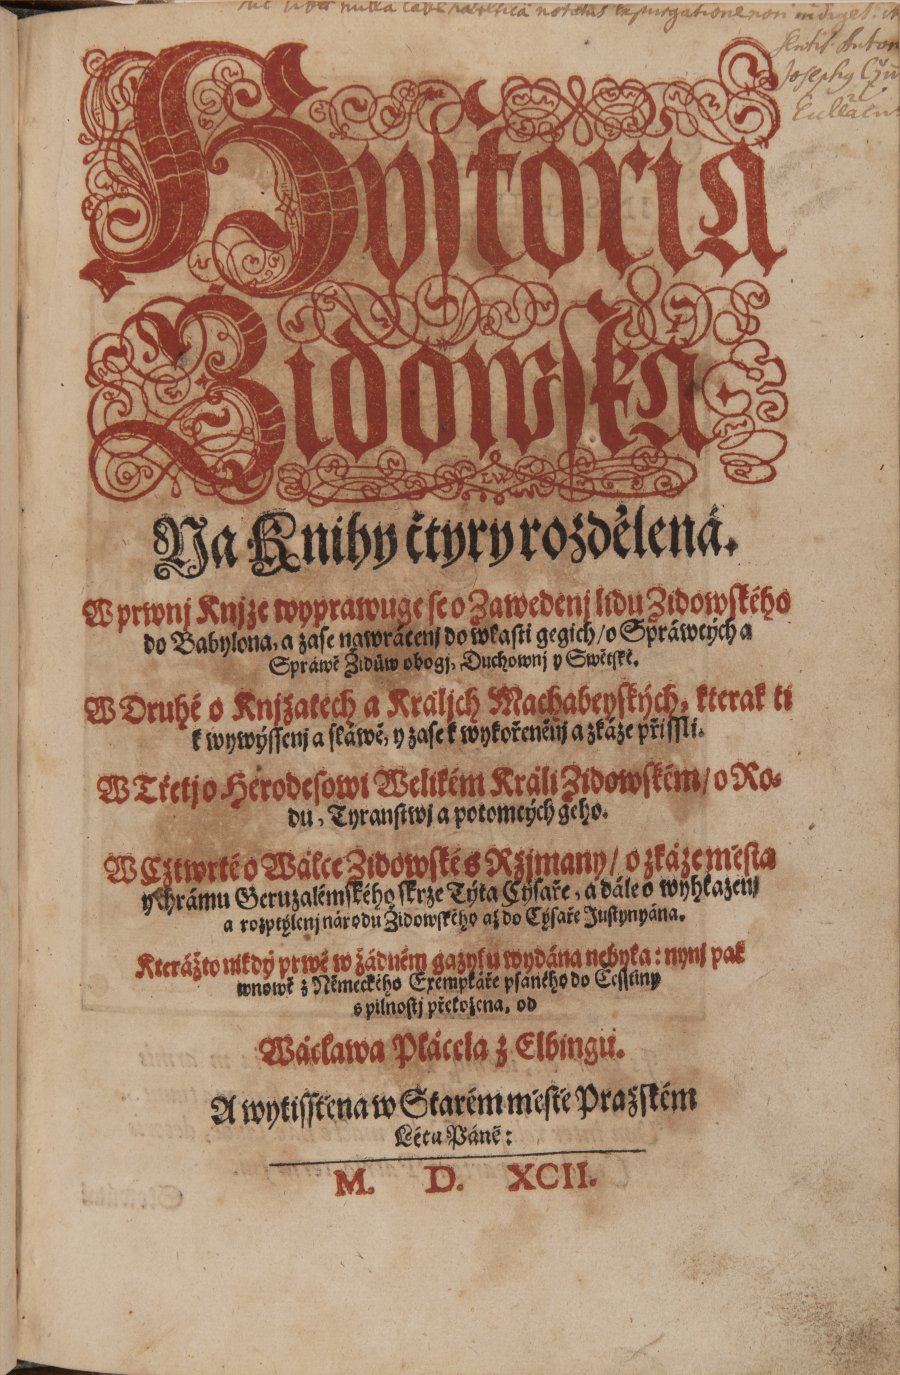 hic liber nulla labe haeretica notatus expurgatione non indiget: ita
sentit Anton
Josephg
Hystoria
Židowská
Na Knihy čtyry rozdělená.
W prwnj Knjze wyprawuge se o Zawedenj lidu Židowského
do Babylona, a zase nawrácenj do wlasti gegich/ o Spráwcých a
Spráwě Židůw obogj, Duchownj y Swětské.
W Druhé o Knjžatech a Králjch Machabeyských, kterak ti
k wywýssenj a sláwě, y zase k wykořeněnj a zkáze přissli.
W Třetj o Herodesowi Welikém Králi Židowském/ o Ro-
du, Tyranstwj a potomcých geho.
W Cžtwrté o Wálce Židowské s Ržjmany/ o zkáze města
y chrámu Geruzalémského skrze Týta Cýsaře, a dále o wyhlazenj
a rozptýlenj národu Židowského až do Cýsaře Justynyána.
Kterážto nikdý prwé w žádném gazyku wydána nebyla: nynj pak
wnowě z Německého Exempláře psaného do Cesstiny
s pilnostj přeložena, od
Wácława Plácela z Elbingu.
A wytisstěna w Starém městě Pražském
Létu Páně:
M. D. XCII.